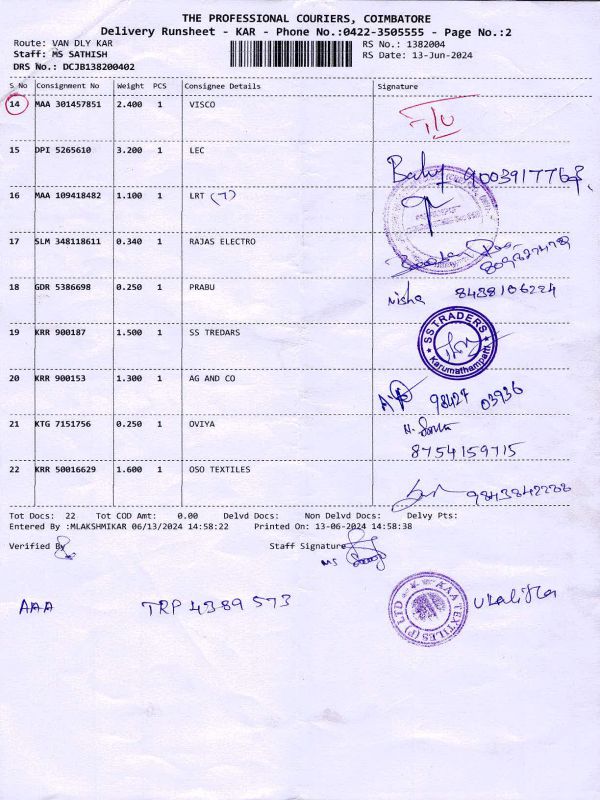 THE PROFESSIONAL COURIERS, COIMBATORE
Delivery Runsheet - KAR - Phone No.:0422-3505555 - Page No.:2
Route: VAN DLY KAR RS No.: 1382004
Staff: MS SATHISH RS Date: 13-Jun-2024
DRS No.: DCJB138200402
S No Consignment No Weight PCS Consignee Details Signature
14 MAA 301457851 2.400 1 VISCO
15 DPI 5265610 3.200 1 LEC Baby 9003917768
16 MAA 109418482 1.100 1 LRT (7)
17 SLM 348118611 0.340 1 RAJAS ELECTRO
18 GDR 5386698 0.250 1 PRABU Nisha 8438106224
19 KRR 900187 1.500 1 SS TREDARS SS TRADERS Karumathampatti
20 KRR 900153 1.300 1 AG AND CO 98427 03936
21 KTG 7151756 0.250 1 OVIYA 8754159715
22 KRR 50016629 1.600 1 OSO TEXTILES 9843842288
Tot Docs: 22 Tot COD Amt: 0.00 Delvd Docs: Non Delvd Docs: Delvy Pts:
Entered By :MLAKSHMIKAR 06/13/2024 14:58:22 Printed On: 13-06-2024 14:58:38
Verified By Staff Signature
MS
AAA TRP 4389573 KAA TEXTILES (P) LTD